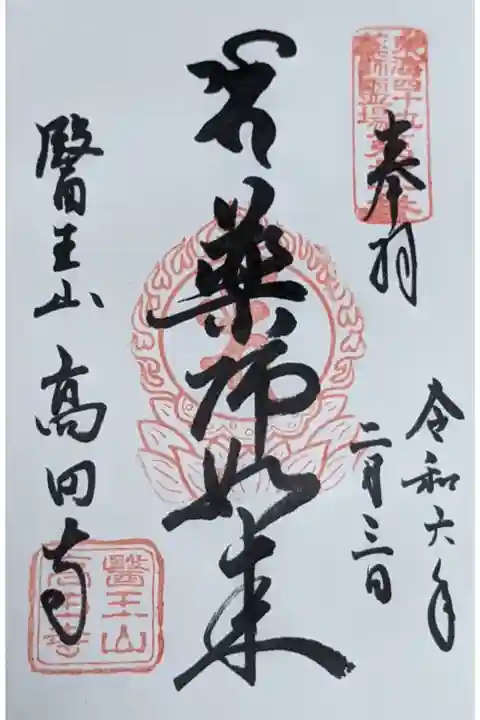 奉拝
令和六年
二月三日
薬師如来
醫王山 高田寺
醫王山
高田寺